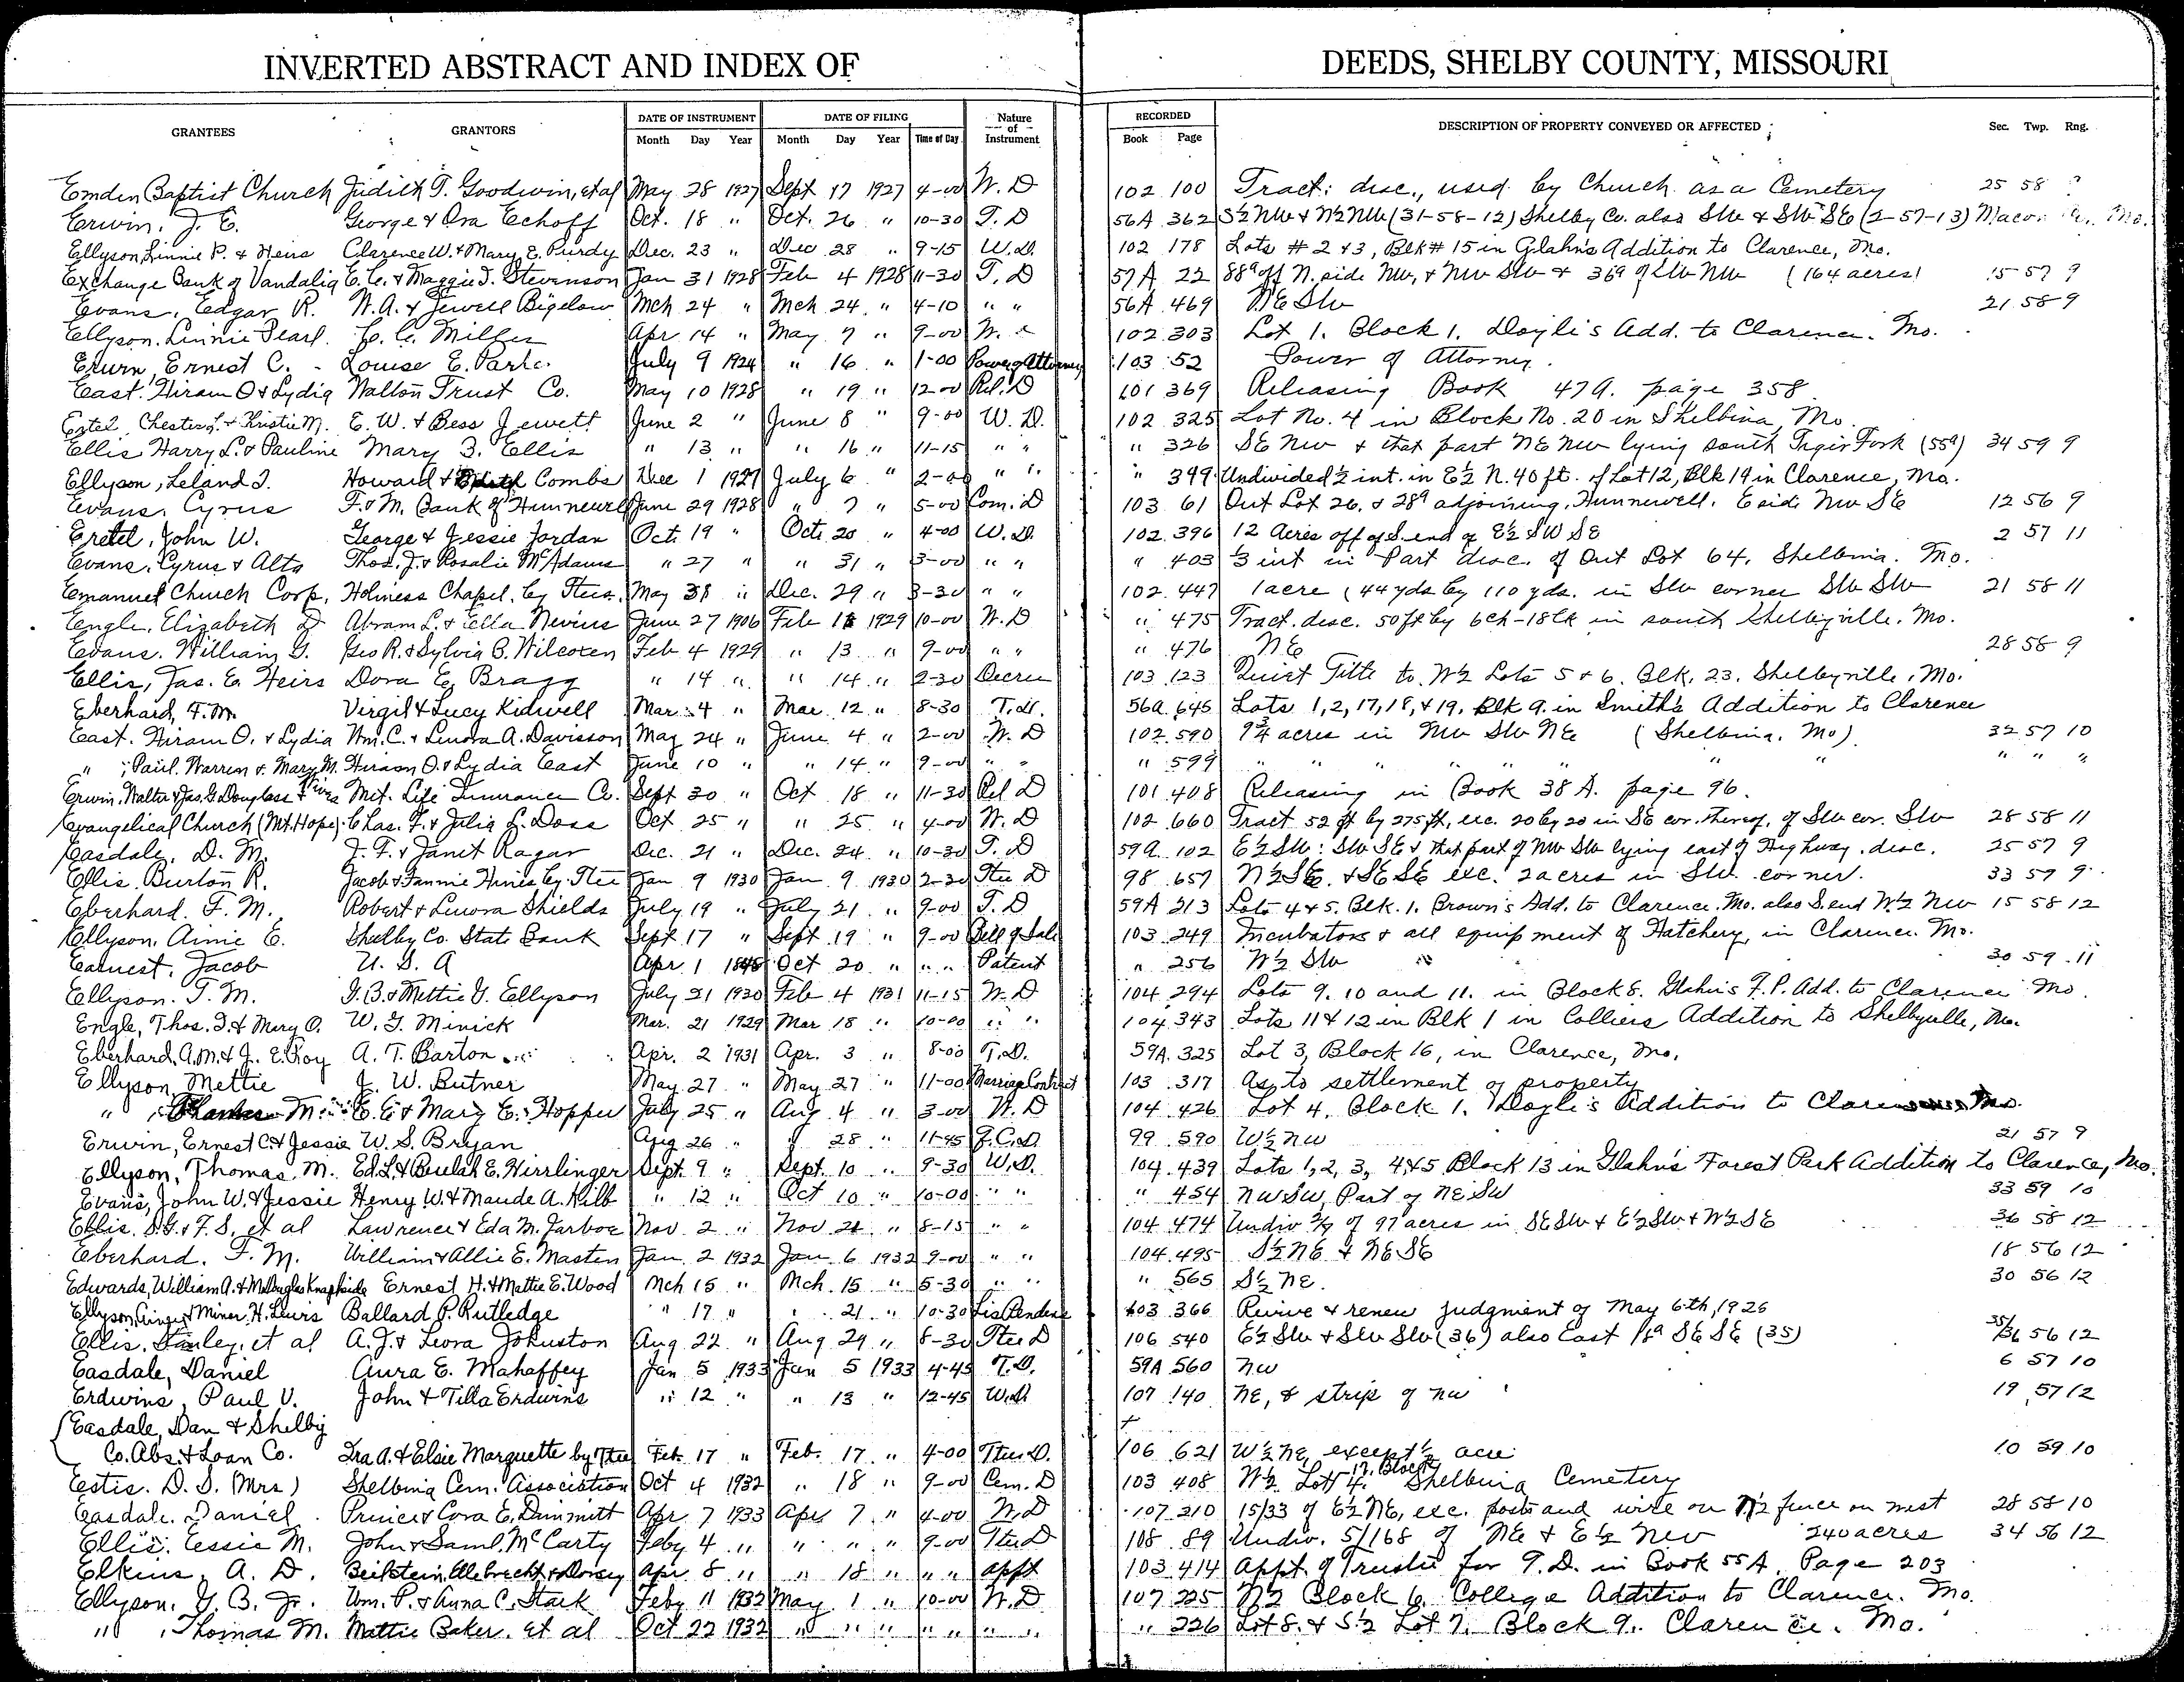 INVERTED ABSTRACT AND INDEX OF DEEDS, SHELBY COUNTY, MISSOURI
GRANTEES GRANTORS DATE OF INSTRUMENT DATE OF FILING Nature of Instrument RECORDED DESCRIPTION OF PROPERTY CONVEYED OR AFFECTED Sec. Twp. Rng.
Month Day Year Month Day Year Time of Day Book Page
Emden Baptist Church Judith T. Goodwin, et al May 28 1927 Sept 17 1927 4-00 W. D 102 100 Tract: desc., used by Church as a Cemetery 25 58 ?
Erwin, J. E. George & Ora Echoff Oct. 18 " Oct. 26 " 10-30 T. D 56A 362 S½ NW & N½ NW (31-58-12) Shelby Co. also SW & SW SE (2-57-13) Macon Mo.
Ellyson, Linnie P. & Heirs Clarence W. & Mary E. Purdy Dec. 23 " Dec 28 " 9-15 W. D. 102 178 Lots #2 & 3, Blk #15 in Glahn's Addition to Clarence, Mo.
Exchange Bank of Vandalia E. C. & Maggie J. Stevenson Jan 31 1928 Feb 4 1928 11-30 T. D 57A 22 88a off N. side NW, & NW SW & 36a of SW NW (164 acres) 15 57 9
Evans, Edgar R. W. A. & Jewell Bigelow Mch 24 " Mch 24 " 4-10 " " 56A 469 NE SW 21 58 9
Ellyson, Linnie Pearl. C. C. Miller Apr 14 " May 7 " 9-00 W. " 102 303 Lot 1. Block 1. Doyle's Add. to Clarence. Mo.
Erwin, Ernest C. Louise E. Parke July 9 1924 " 16 " 1-00 Power of Attorney 103 52 Power of Attorney.
East. Hiram O & Lydia Walton Trust Co. May 10 1928 " 19 " 12-00 Rel. D 101 369 Releasing Book 47A. page 358
Estel, Chester L. & Kristie M. E. W. & Bess Jewett June 2 " June 8 " 9-00 W. D. 102 325 Lot No. 4 in Block No. 20 in Shelbina, Mo.
Ellis Harry L. & Pauline Mary B. Ellis " 13 " " 16 " 11-15 " " " 326 SE NW & that part NE NW lying south Tiger Fork (55a) 34 59 9
Ellyson, Leland J. Howard & Combs Dec 1 1927 July 6 " 2-00 " " " 399 Undivided ½ int. in E½ N. 40 ft. of Lot 12, Blk 19 in Clarence, Mo.
Evans, Cyrus F. & M. Bank of Hunnewell June 29 1928 " 7 " 5-00 Com. D 103 61 Out Lot 26. & 28a adjoining. Hunnewell. E side NW SE 12 56 9
Eretel, John W. George & Jessie Jordan Oct. 19 " Oct. 20 " 4-00 W. D. 102 396 12 Acres off of S. end of E½ SW SE 2 57 11
Evans, Cyrus & Alta Thos. J. & Rosalie McAdams " 27 " " 31 " 3-00 " " " 403 ⅓ int in Part desc. of Out Lot 64. Shelbina. Mo.
Emanuel Church Corp. Holiness Chapel. by Ttees. May 31 " Dec. 29 " 3-30 " " 102 447 1 acre (44 yds by 110 yds. in SW corner SW SW 21 58 11
Engle, Elizabeth D Abram L. & Ella Nevius June 27 1906 Feb 18 1929 10-00 W. D " 475 Tract. desc. 50 ft by 6 ch-18 lk in south Shelbyville. Mo.
Evans. William G. Geo R. & Sylvia B. Wilcoxen Feb 4 1929 " 13 " 9-00 " " " 476 NE 28 58 9
Ellis, Jas. E. Heirs Dora E. Bragg " 14 " " 14 " 2-30 Decree 103 123 Quiet Title to W½ Lots 5 & 6. Blk. 23. Shelbyville, Mo.
Eberhard, F. M. Virgil & Lucy Kidwell Mar. 4 " Mar. 12 " 8-30 T. D. 56A 645 Lots 1, 2, 17, 18, & 19. Blk 9. in Smith's Addition to Clarence
East. Hiram O. & Lydia Wm. C. & Lenora A. Davisson May 24 " June 4 " 2-00 W. D 102 590 9¾ acres in NW SW NE (Shelbina, Mo.) 32 57 10
" ; Paul. Warren & Mary M. Hiram O. & Lydia East June 10 " " 14 " 9-00 " " " 599 " " " " " " " " "
Erwin, Walter & Jas. G Douglass & wives Mut. Life Insurance Co. Sept 30 " Oct 18 " 11-30 Rel D 101 408 Releasing in Book 38 A. page 96.
Evangelical Church (Mt. Hope) Chas. F. & Julia L. Doss Oct 25 " " 25 " 4-00 W. D 102 660 Tract 52 ft by 275 ft, exc. 20 by 20 in SE cor. thereof, of SW cor. SW 28 58 11
Easdale, D. M. J. F. & Janet Ragar Dec. 21 " Dec. 24 " 10-30 T. D 59A 102 E½ SW: SW SE & that part of NW SW lying east of Highway. desc. 25 57 9
Ellis. Burton R. Jacob & Fannie Hines by Ttee Jan 9 1930 Jan 9 1930 2-30 Ttee D 98 657 N½ SE. & SE SE exc. 2 acres in SW corner. 33 59 9
Eberhard. F. M. Robert & Lenora Shields July 19 " July 21 " 9-00 T. D 59A 213 Lots 4 & 5. Blk. 1. Brown's Add. to Clarence. Mo. also S. end W½ NW 15 58 12
Ellyson, Aimie E. Shelby Co. State Bank Sept 17 " Sept 19 " 9-00 Bill of Sale 103 249 Incubators & all equipment of Hatchery, in Clarence. Mo.
Earnest, Jacob U. S. A Apr 1 1848 Oct 20 " " " Patent " 256 W½ SW 30 59 11
Ellyson. T. M. G. B. & Mettie G. Ellyson July 21 1930 Feb 4 1931 11-15 W. D 104 294 Lots 9. 10 and 11. in Block 8. Glahn's F. P. Add. to Clarence Mo.
Engle, Thos. J. & Mary O. W. G. Minick Mar. 21 1929 Mar 18 " 10-00 " " 104 343 Lots 11 & 12 in Blk 1 in Colliers Addition to Shelbyville, Mo.
Eberhard, A. M. & J. E. Roy A. T. Barton Apr. 2 1931 Apr. 3 " 8-00 T. D. 59A. 325 Lot 3, Block 16, in Clarence, Mo.
Ellyson, Mettie J. W. Butner May 27 " May 27 " 11-00 Marriage Contract 103 317 As to settlement of property
" , M. E. E. & Mary E. Hopper July 25 " Aug 4 " 3-00 W. D 104 426 Lot 4. Block 1. Doyle's Addition to Clarence Mo.
Erwin, Ernest C. & Jessie W. S. Bryan Aug 26 " " 28 " 11-45 Q. C. D. 99 590 W½ NW 21 57 9
Ellyson, Thomas. M. Ed. L. & Beulah E. Hirrlinger Sept. 9 " Sept. 10 " 9-30 W. D. 104 439 Lots 1, 2, 3, 4 & 5 Block 13 in Glahn's Forest Park Addition to Clarence, Mo.
Evans, John W. & Jessie Henry W. & Maude A. Kilb " 12 " Oct 10 " 10-00 " " " 454 NW SW, Part of NE SW 33 59 10
Ellis. S. G. & F. S. et al Lawrence & Eda M. Jarboe Nov. 2 " Nov 21 " 8-15 " " 104 474 Undiv 2/9 of 97 acres in SE SW & E½ SW & W½ SE 36 58 12
Eberhard. F. M. William & Allie E. Masten Jan 2 1932 Jan 6 1932 9-00 " " 104 495 S½ NE & NE SE 18 56 12
Edwards, William A. & Ernest H. & Mattie E. Wood Mch 15 " Mch. 15 " 5-30 " " " 565 S½ NE. 30 56 12
Ellyson, & Miner H. Lewis Ballard P. Rutledge " 17 " " 21 " 10-30 Lis Pendens 103 366 Revive & renew judgment of May 6th, 1926
Ellis. Stanley, et al A. J. & Leora Johnston Aug 22 " Aug 29 " 8-30 Ttee D 106 540 E½ SW & SW SW (36) also East 18a SE SE (35) 35/36 56 12
Easdale, Daniel Aura E. Mahaffey Jan 5 1933 Jan 5 1933 4-45 T. D. 59A 560 NW 6 57 10
Erdwins, Paul V. John & Tilla Erdwins " 12 " " 13 " 12-45 W. D. 107 140 NE, & strip of NW 19 57 12
Easdale, Dan & Shelby
Co. Abs. & Loan Co. Ira A. & Elsie Marquette by Ttee Feb. 17 " Feb. 17 " 4-00 Ttee D. 106 621 W½ NE, except ½ acre 10 59 10
Estis. D. S. (Mrs) Shelbina Cem. Association Oct 4 1932 " 18 " 9-00 Cem. D 103 408 W½ Lot 4. Shelbina Cemetery
Easdale. Daniel Prince & Cora E. Dimmitt Apr 7 1933 Apr 7 " 4-00 W. D 107 210 15/33 of E½ NE, exc. posts and wire on N½ fence on west 28 58 10
Ellis. Essie M. John & Saml. McCarty Feby 4 " " " " 9-00 Ttee D 108 89 Undiv. 5/168 of NE & E½ NW 240 acres 34 56 12
Elkins, A. D. Beilstein, Ellebrecht & Dorsey Apr 8 " " 18 " " " Appt 103 414 Appt. of Trustee for T. D. in Book 55A. Page 203
Ellyson. G. B. Jr. Wm. P. & Anna C. Stack Feby 11 1932 May 1 " 10-00 W. D 107 225 N½ Block 6. College Addition to Clarence. Mo.
" , Thomas M. Mattie Baker. et al Oct 22 1932 " " " " " " " " 226 Lot 8. & S½ Lot 7. Block 9. Clarence. Mo.